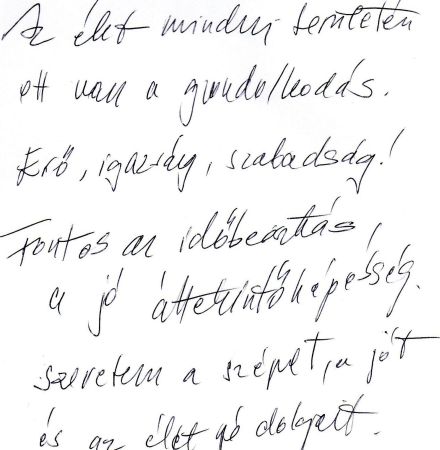 Az élet minden területén
ott van a gondolkodás.
Erő, igazság, szabadság!
Fontos az időbeosztás,
a jó áttekintőképesség.
szeretem a szépet, a jót
és az élet jó dolgait.